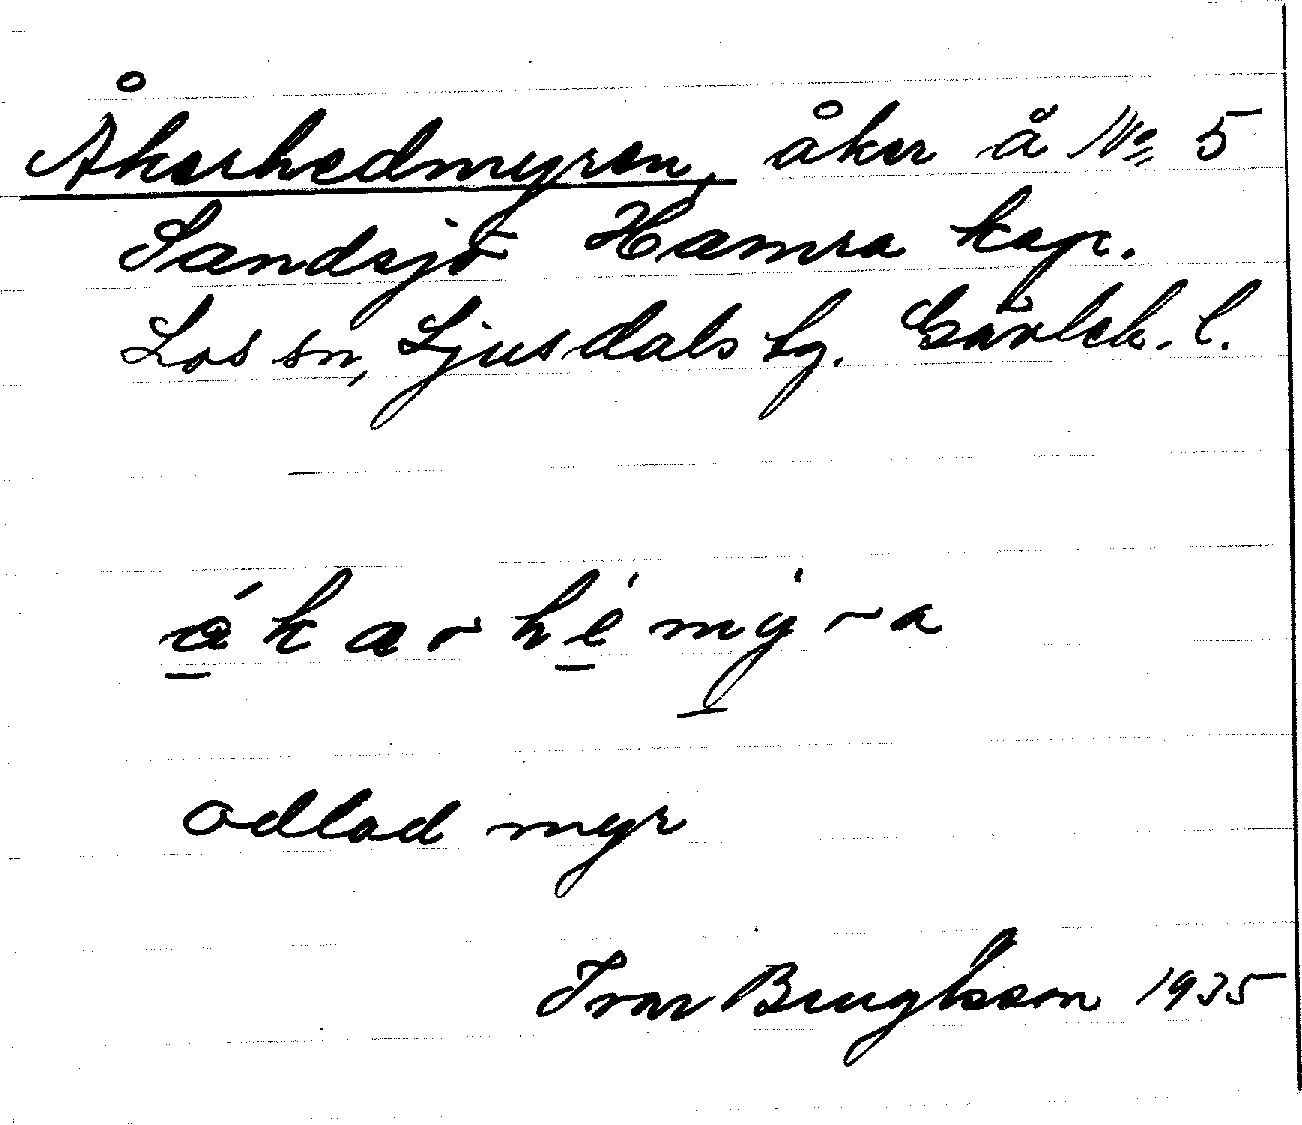 Åkerhedmyren, åker å No 5
Sandsjö Hamra kap.
Los sn, Ljusdals tg. Gävleb. l.
ákarhémýra
odlad myr
Ivar Bengtsson 1935